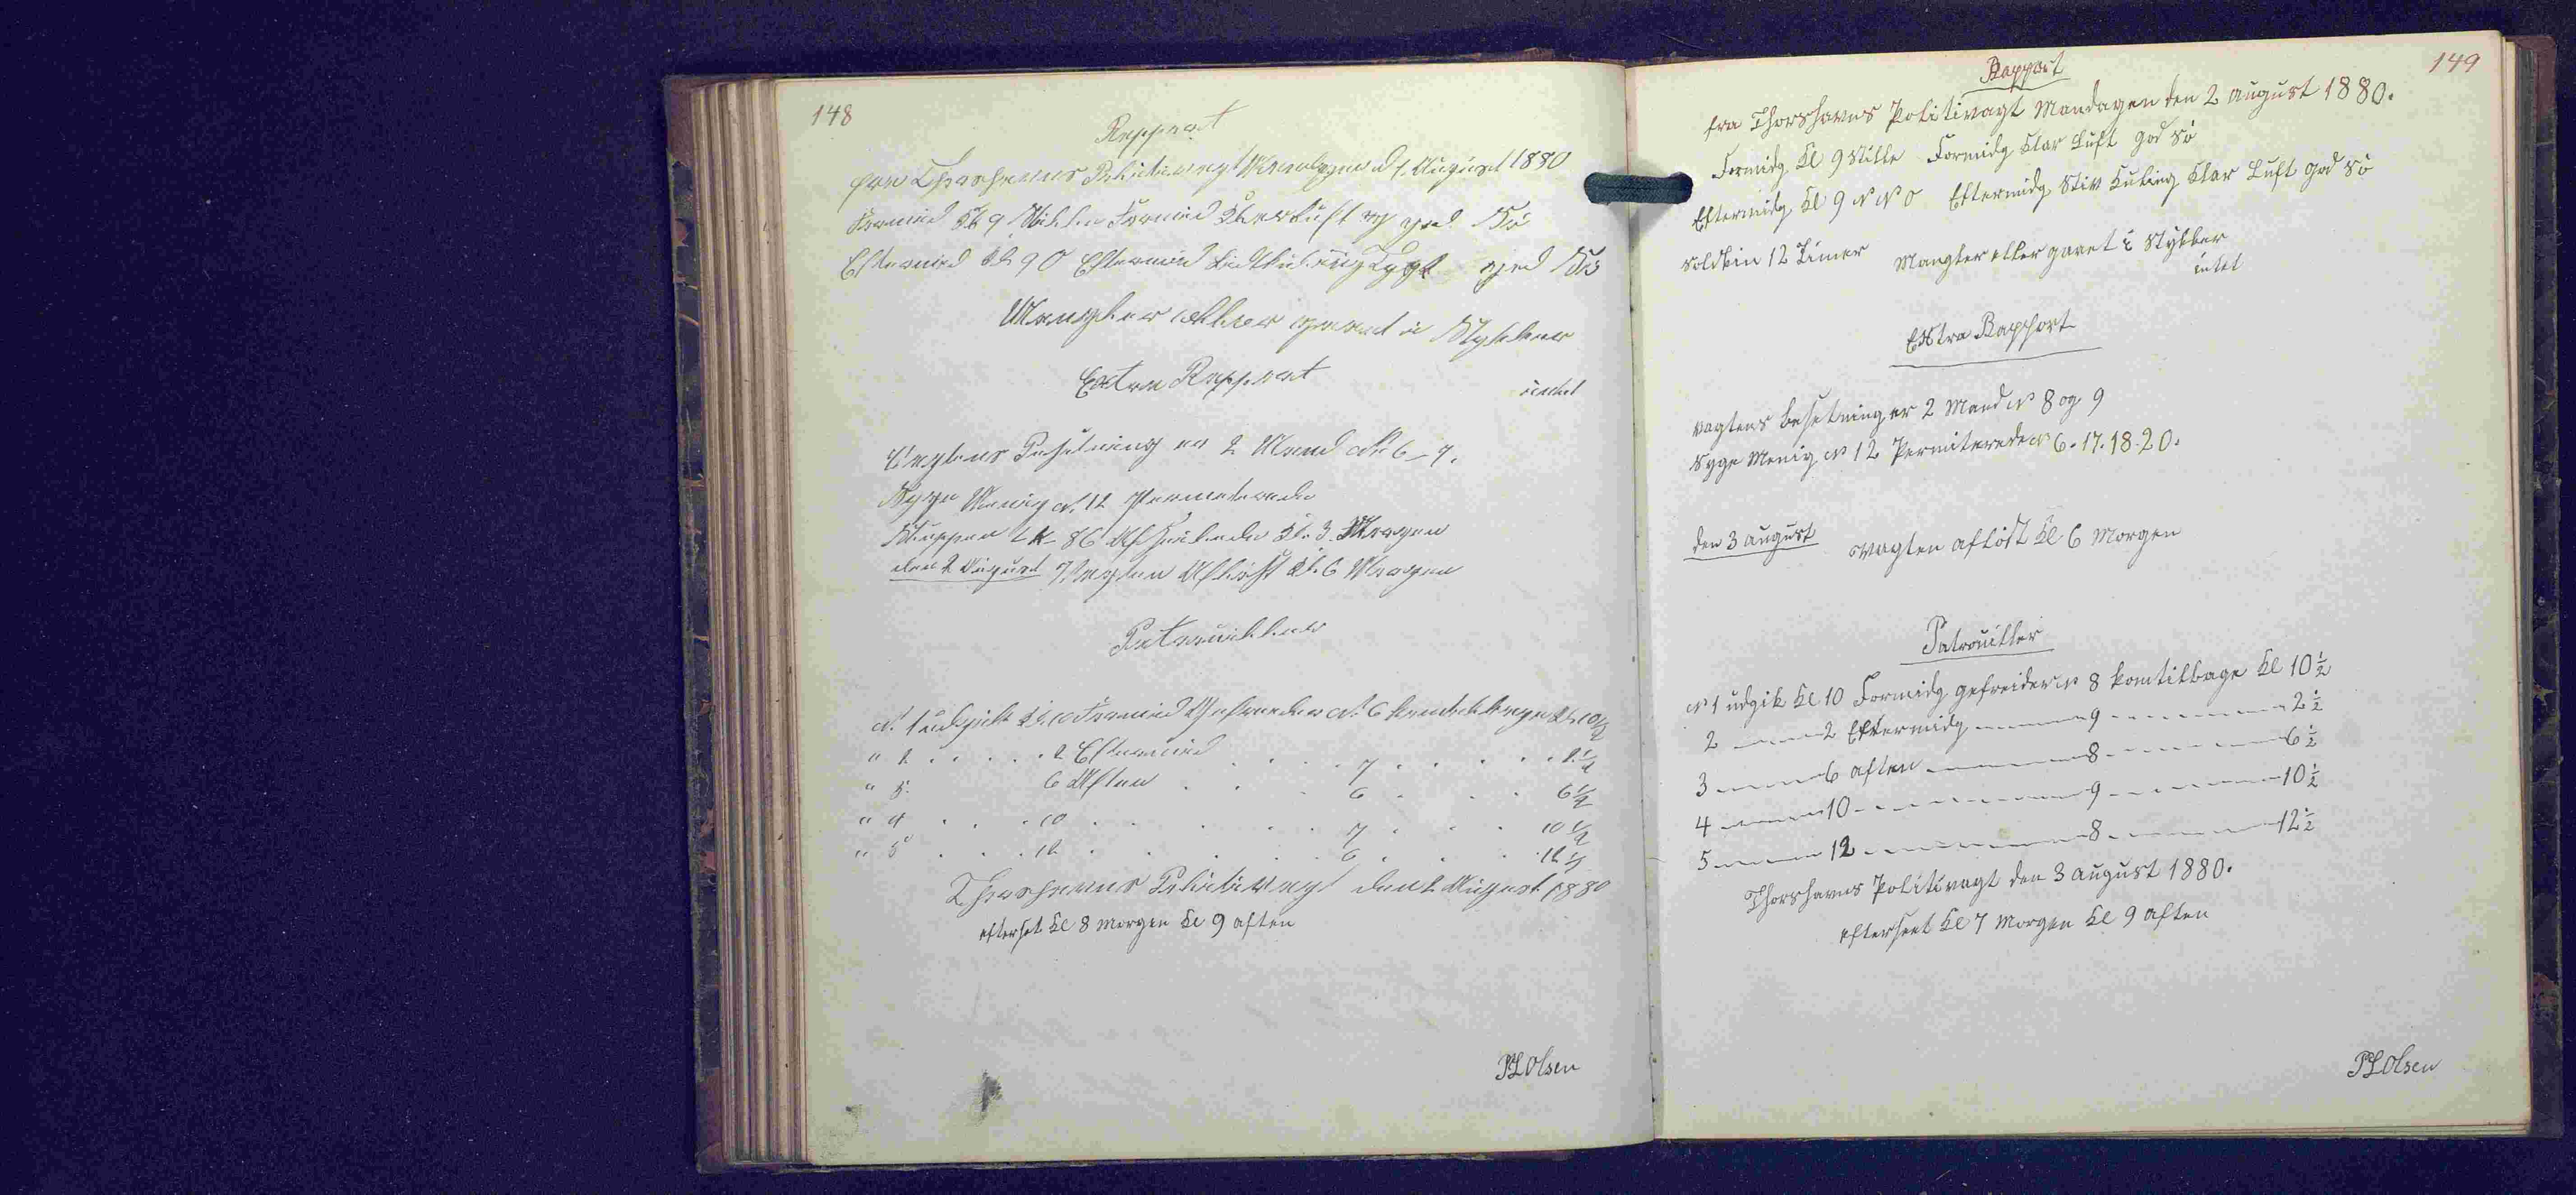 148
Rapport
fra Thorshavns Politivagt Søndagen d 1. August 1880
Formid Kl 9 Stille Formid Klar Luft og god Sø
Eftermid Kl 9 O Eftermid Lidt Kuling Tygt god Sø
Mangler eller gaaet i Stykker
intet
Extra Rapport
Vagtens Besetning er 2 Mand N. 6 - 7.
Syge Menig N. 12 Permiterede
Sluppen 86 Afseilede Kl. 3. Morgen
den 2 August Vagten Afløst Kl. 6 Morgen
Patrouiller
N. 1 udgik Kl. 10 Formid Gefreider N. 6 kom tilbage Kl. 10 1/2
" 2 . . . . . 2 Eftermid . . . . 7 . . . . . 2 1/2
" 3. 6 Aften . . . 6 . . . 6 1/2
" 4 . . . 10 . . . . . 7 . . . 10 1/2
" 5 . . . 12 . . . . 6 . . . 12 1/2
Thorshavns Politivagt den 2 August 1880
efterset Kl 8 Morgen Kl 9 aften
PL Olsen
149
Rapport
fra Thorshavns Politivagt Mandagen den 2 august 1880.
Formidg Kl 9 Stille Formidg Klar Luft god Sø
Eftermidg Kl 9 N N O Eftermidg Stiv Kuling Klar Luft god Sø
Soldkin 12 Timer Mangler eller gaaet i Stykker
intet
Extra Rapport
Vagtens besetning er 2 Mand N 8 og 9
Syge Menig N 12 Permiterede N 6. 17. 18. 20.
den 3 august Vagten afløst Kl 6 Morgen
Patrouiller
N 1 udgik Kl 10 Formidg gefreider N 8 kom tilbage Kl 10 1/2
2 ---- 2 Eftermidg ---- 9 ---- 2 1/2
3 ---- 6 aften ---- 8 ---- 6 1/2
4 ---- 10 ---- 9 ---- 10 1/2
5 ---- 12 ---- 8 ---- 12 1/2
Thorshavns Politivagt den 3 august 1880.
efterseet Kl 7 Morgen Kl 9 aften
PL Olsen